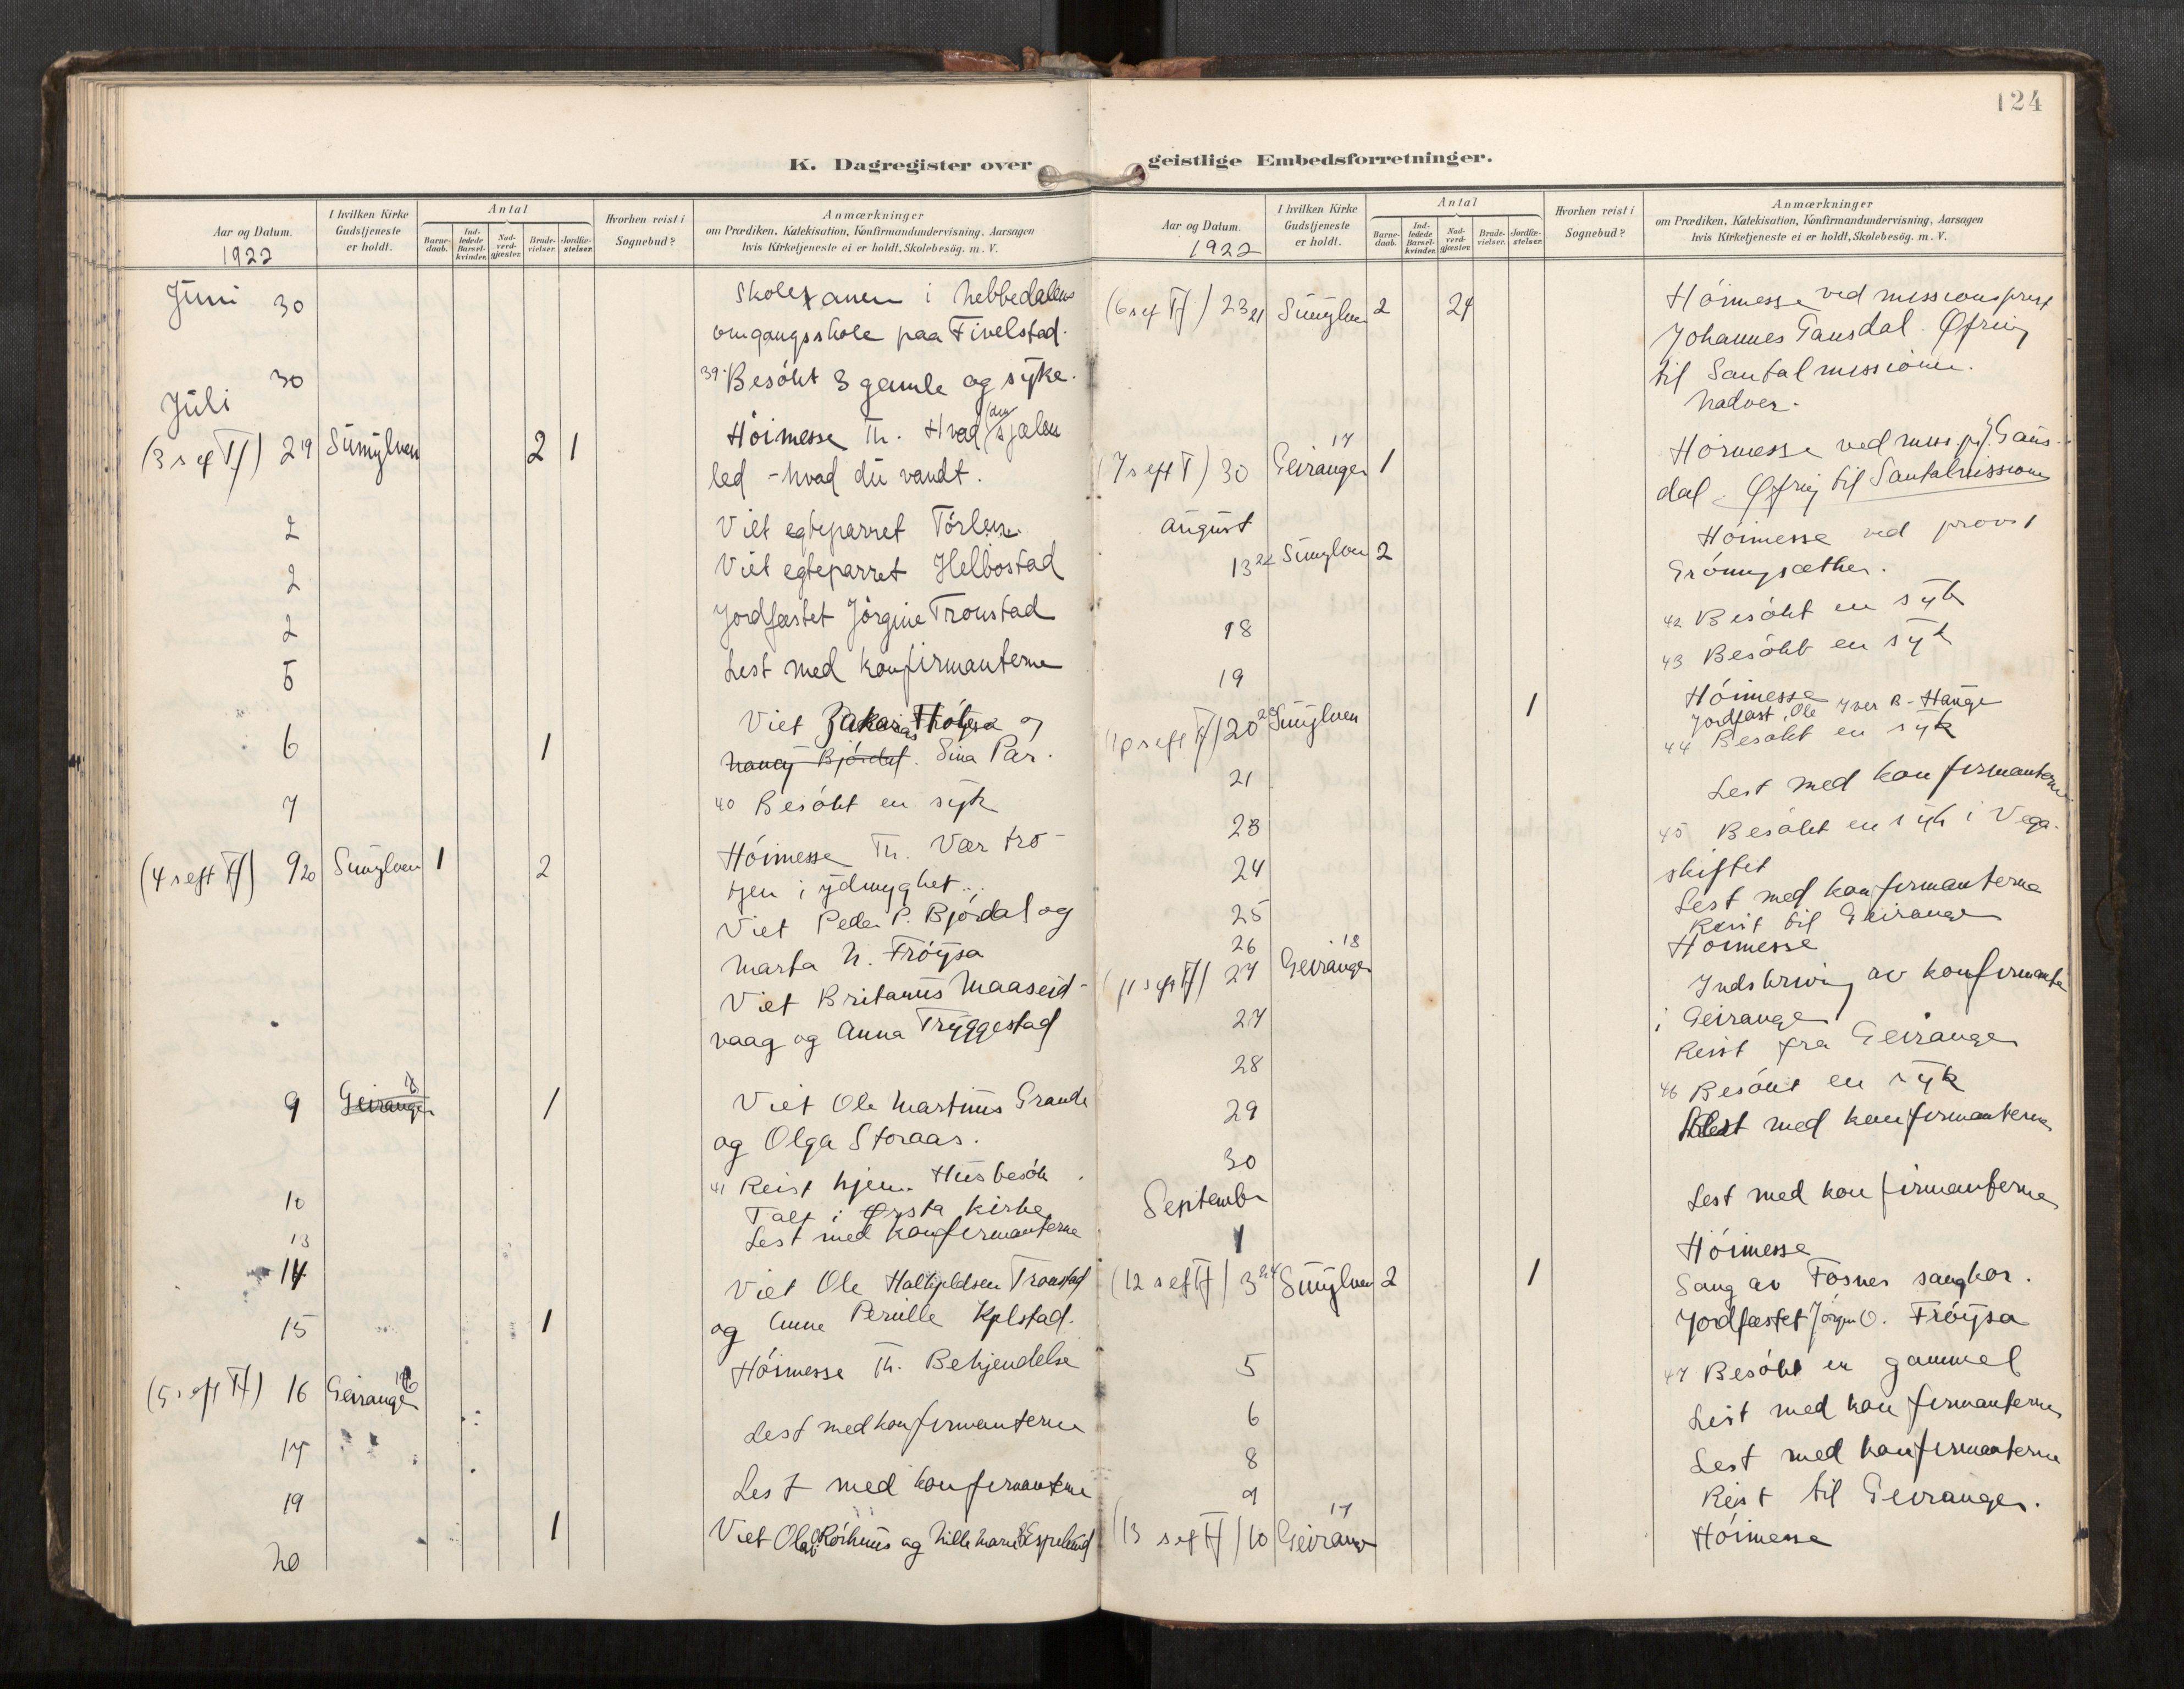 124
K. Dagregister over geistlige Embedsforretninger.
Aar og Datum.
1922
I hvilken Kirke
Gudstjeneste
er holdt.
Antal
Barne-
daab.
Ind-
ledede
Barsel-
kvinder.
Nad-
verd-
gjæster.
Brude-
vielser.
Jordfæ-
stelser.
Hvorhen reist i
Sognebud?
Anmærkninger
om Prædiken, Katekisation, Konfirmandundervisning, Aarsagen
hvis Kirketjeneste ei er holdt, Skolebesøg. m. V.
Juni 30 Skolexamen i
omgangsskole paa Fivelstad.
30 39. Besökt 3 gamle og syke.
Juli
(3 s ef Tf) 2 19 Sunylven 2 1 Höimesse Th. Hvad den sjælen
led - hvad du vandt.
2 Viet egteparret
2 Viet egteparret Helbostad
2 Jordfæstet Jörgine Tronstad
5 Lest med konfirmanterne
6 1 Viet Zakarias Fröysa og
Nancy Björdal. Sina
7 40 Besökt en syk
(4 s eft Tf) 9 20 Sunylven 1 2 Höimesse Th. Vær tro
tjen i ydmyghet...
Viet Peder P. Björdal og
Marta N. Fröysa
Viet Britanus Maaseid-
vaag og Anna Tryggestad
9 Geiranger 1 Viet Ole Martinus Grande
og Olga Storaas.
10 41 Reist hjem. Husbesök.
Talt i Ørsta kirke
13 Lest med konfirmanterne
14
15 1 Viet Ole Tronstad
og Anne Pernille
(5 s eft Tf) 16 Geiranger 16 Höimesse Th. Bekjendelse
17 Lest med konfirmanterne
19 Lest med konfirmanterne
20 1 Viet Olav og
Aar og Datum.
1922
I hvilken Kirke
Gudstjeneste
er holdt.
Antal
Barne-
daab.
Ind-
ledede
Barsel-
kvinder.
Nad-
verd-
gjæster.
Brude-
vielser.
Jordfæ-
stelser.
Hvorhen reist i
Sognebud?
Anmærkninger
om Prædiken, Katekisation, Konfirmandundervisning, Aarsagen
hvis Kirketjeneste ei er holdt, Skolebesøg. m. V.
(6 s ef Tf) 23 21 Sunylven 2 24 Höimesse ved missionsprest
Johannes Gausdal. Øfring
til Santalmissionen.
Nadver.
(7 s eft T) 30 Geiranger 17 1 Höimesse ved miss. pr. J. Gaus-
dal. Øfring til Santalmissionen
August
13 22 Sunylven 2 Höimesse ved provst
Gröningsæther.
18 42 Besökt en syk
19 43 Besökt en syk
(10 s eft Tf) 20 23 Sunylven 1 Höimesse
Jordfæst. Ole Iver R. Hauge
21 44 Besökt en syk
23 Lest med konfirmanterne
24 45 Besökt en syk i Vega-
skiftet
25 Lest med konfirmanterne
26 Reist til Geiranger
(11 s eft Tf) 27 Geiranger 18 Höimesse
27 Indskriving av konfirmanter
i Geiranger
28 Reist fra Geiranger
29 46 Besökt en syk
30 Lest med konfirmanterne
September
1 Lest med konfirmanterne
(12 s ef Tf) 3 24 Sunylven 2 1 Höimesse
Sang av Fosnes sangkor.
Jordfæstet Jörgen O. Fröysa
5 47 Besökt en gammel
6 Lest med konfirmanterne
8 Lest med konfirmanterne
9 Reist til Geiranger.
(13 s ef Tf) 10 Geiranger 17 Höimesse